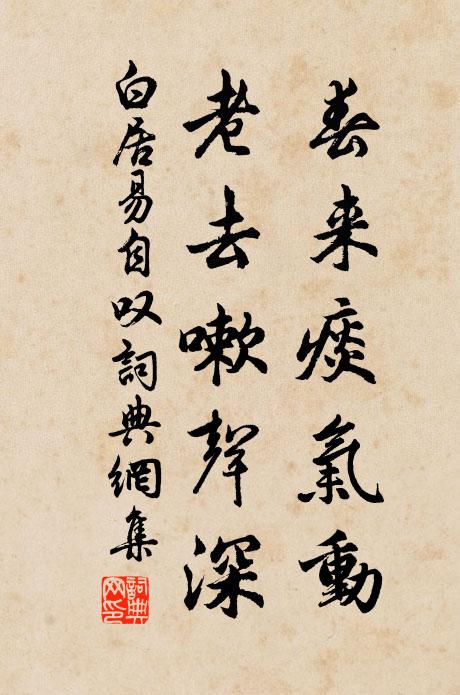 春来痰氣動
老去嗽聲深
白居易自叹詞典網集
詞典
网印